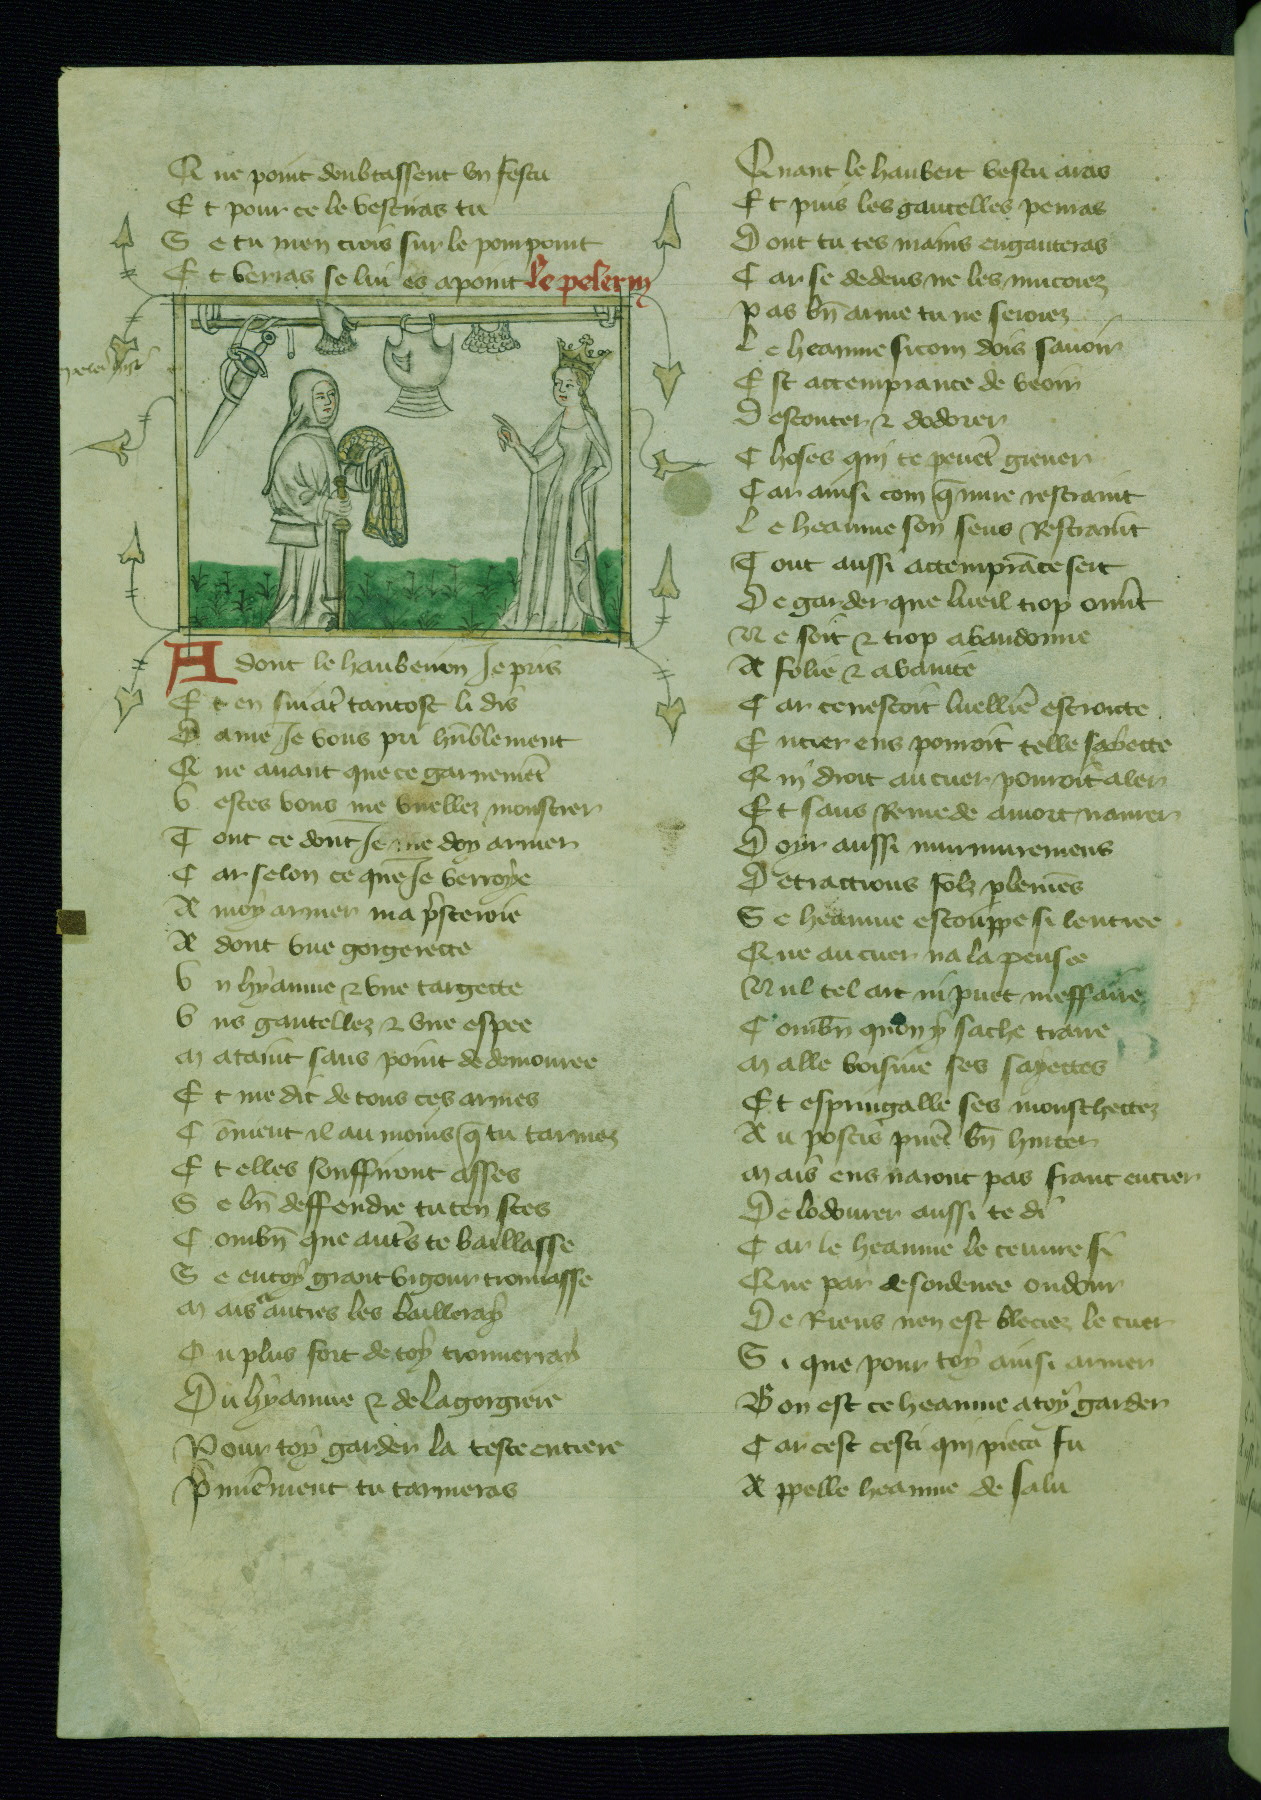 Q ne point doubtassent vn festu
E t pour ce le vestiras tu
S e tu men crois sur le pompoint
E t verras se lui es apoint Le pelerin
A dont le haubenon Je pris
E t en suiāt tantost li dis
D ame Je vous pri hūblement
Q ne auant que ce garnemēt
V estes vous me vueillez monstrer
T out ce dont Je me doy armer
C ar selon ce que Je verroye
A moy armer ma p̄steroie
A dont vne gorgerette
V n hyaume ⁊ vne targette
V ns gantellez ⁊ vne espee
M ataint sans point de demouree
E t me dit de tous ces armes
C ōment il au moins q̄ tu tarmez
E t elles souffiront asses
S e bn̄ deffendre tu ten sces
C ombn̄ que aut̄s te baillasse
S e en toy grant vigour trouuasse
M ais autres les bailleray
Q u plus fort de toy trouueray
D u hyaume ⁊ de la gorgiere
P our toy garder la teste entiere
P̄ miēment tu tarmeras
Q uant le haubert vestu aras
E t puis les gantelles penras
D ont tu tes mains enganteras
C ar se dedens ne les mucoiez
P as bn̄ arme tu ne seroiez
L e heaume sicom dois sauoir
E st attemprance de veoir
D escouter ⁊ dodorer
C hoses qui te peuēt greuer
C ar ainsi com q̄ mire restraint
L e heaume son sens Restraint
T out aussi attemprāce sert
D e garder que lueil trop ouu̅t
N e soit ⁊ trop abandonne
A folie ⁊ a vanite
C ar ce nestoit luelliē estroitte
E ntrer ens porroit telle saiette
Q ui droit au cuer porroit aler
E t sans Remede a mort naurer
D oyr aussi murmuremens
D etractions folz plemēs
S e heaume estouppe si lentree
Q ue au cuer na la pensee
N ul tel art ni puet meffaire
C ombn̄ quon y sache traire
M alle voisine ses sayettes
E t espringalle ses monschettez
A u postis puēt bn̄ hurter
M ais ens naront pas franc entrer
D e lodourer aussi te di
C ar le heaume le ceuure si
Q ue par desordenee oudour
D e Riens nen est bleciez le cuer
S i que pour toy ainsi armer
B on est ce heaume a toy garder
C ar cest cesti qui pieca fu
A ppelle heaume de salu